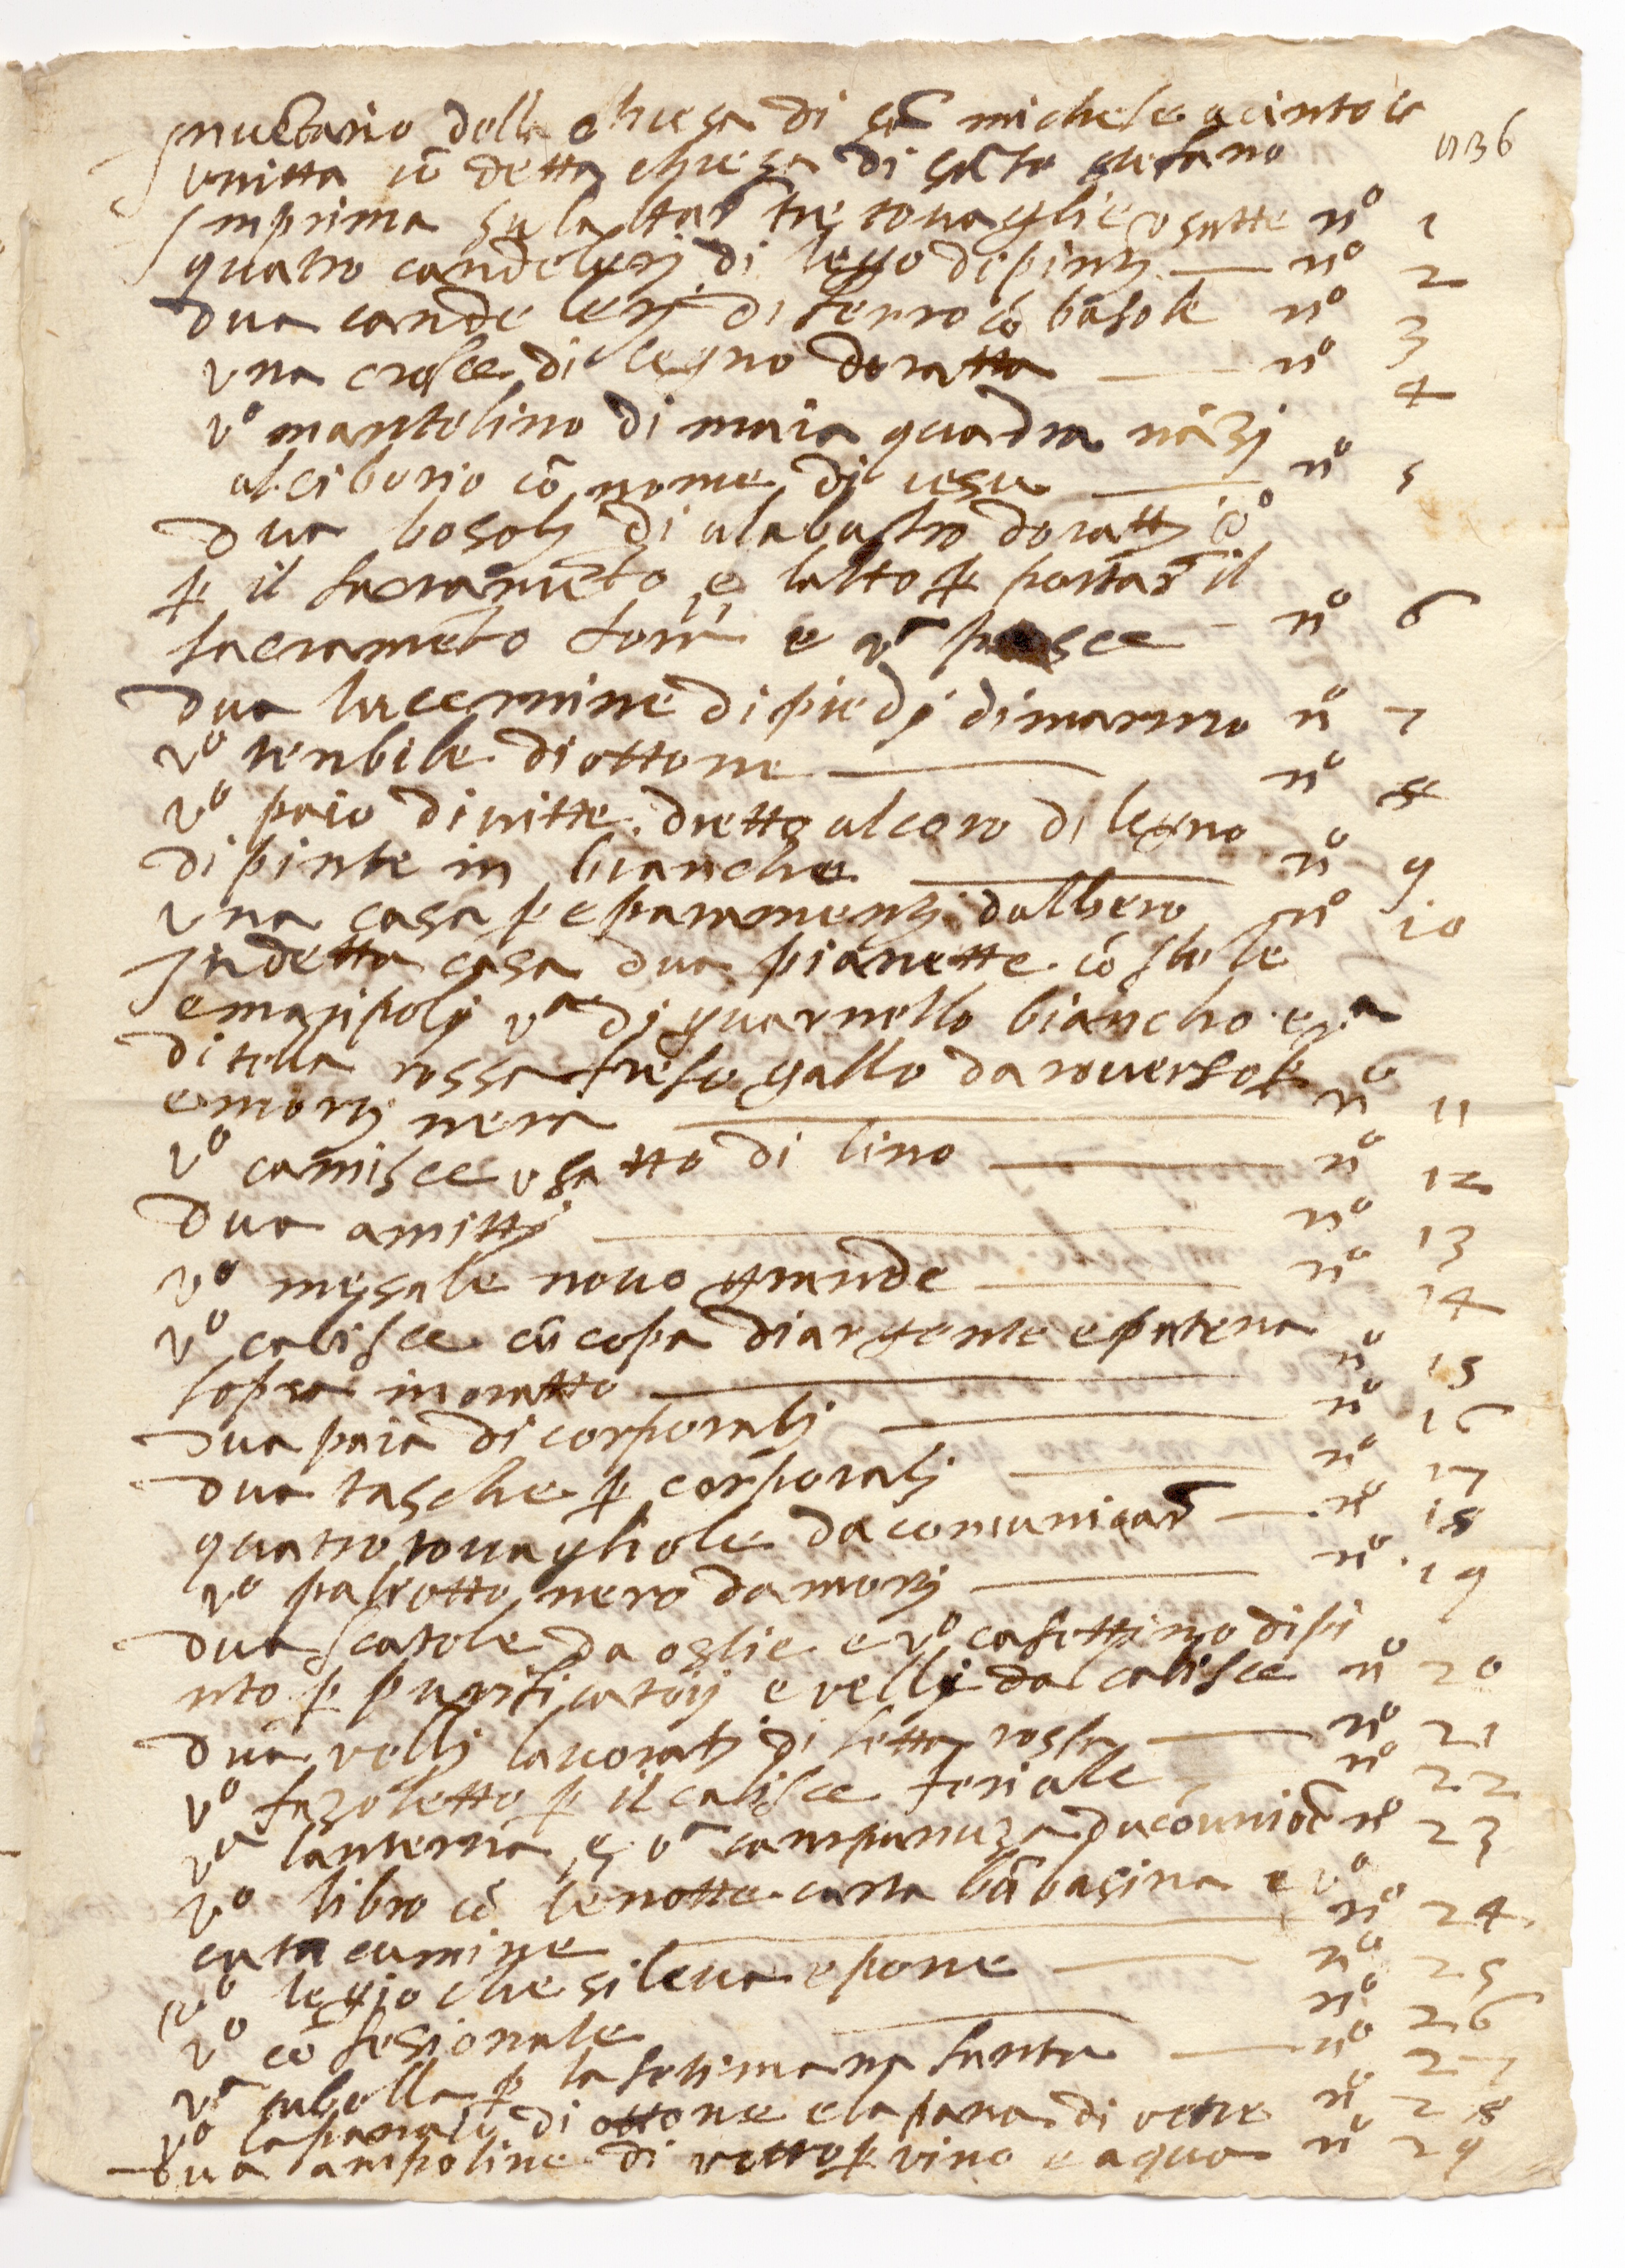 Inuētario della chiesa di sā michele a cintoia
unitta cō detta chiesa di sāto stefano
1136
Imprima su laltar tre tovaglie usatte n° 1
quatro candelierj di legno dipintj n° 2
dua candelierj di ferro cō bāsole n° 3
una crosce di legno doratta n° 4
v° mantelino di maia quadra nāzj
al ciborio cō nome di iesu n° 5
dua bosolj di alabastro dorattj
p il sacramēto e laltro p portar il
sacramēto fori e va n° 6
dua lucernine di piedj di marmo n° 7
v° teribile di ottone n° 8
v° paio di vitte dretto al coro di legno
dipinte in bianche n° 9
una casa p e paramentj dalbero n° 10
In detta casa dua pianette cō stole
e manipolj va dj guarnello biancho e va
di tella rossa freso gallo da roverso p
e mortj nera n° 11
v° camisce usatto di lino n° 12
dua amittj n° 13
v° messale novo grande n° 14
v° calisce cū copa di argente e patena
sopra inoratto n° 15
dua paia di corporalj n° 16
dua tasche p corporalj n° 17
quatro tovagliole da comunicar n° 18
v° paliotto nero da mortj n° 19
dua scatole da oglie e v° casettino dipi
nto p purificatorj e vellj da calisce n° 20
dua vellj lavoratj di setta rossa n° 21
v° fazoletto p il calisce feriale n° 22
va lanterna e va campanuza da cōuniōe n° 23
v° libro cō le notte carta bābagina e v°
catacumine n° 24
v° legio che si leva e pone n° 25
v° cōfesionale n° 26
va tabella p la setimana santa n° 27
v° di ottone e la di vetre n° 28
dua ampoline di vettro p vino e aqua n° 29